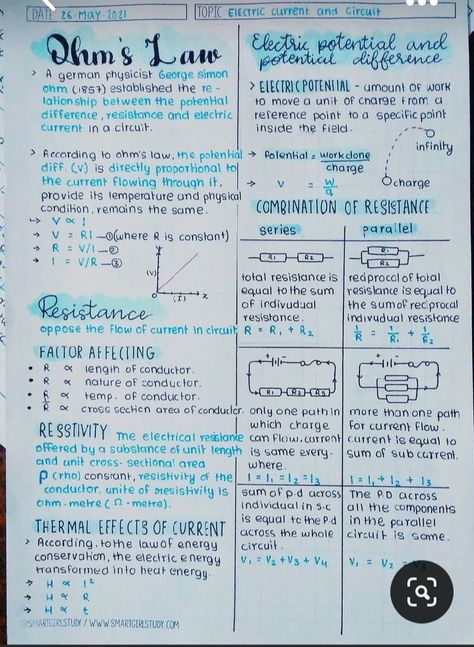 DATE 26-MAY-2021
TOPIC Electric current and Circuit
Ohm's Law
> A german physicist George simon
ohm (1857) established the re-
lationship between the potential
difference, resistance and electric
current in a circuit.
> According to ohm's law, the potential
diff. (V) is directly proportional to
the current flowing through it,
provide its temperature and physical
condition, remains the same.
V ∝ I
→ V = RI —① (where R is constant)
→ R = V/I —②
→ I = V/R —③
y
(V)
(I)
x
Resistance
oppose the flow of current in circuit
FACTOR AFFECTING
• R ∝ length of conductor.
• R ∝ nature of conductor.
• R ∝ temp. of conductor.
• ∝ cross section area of conductor.
RESSTIVITY The electrical resistance
offered by a substance of unit length
and unit cross-sectional area
ρ (rho) constant, resistivity of the
conductor. unite of resistivity is
ohm-metre (Ω-metre).
THERMAL EFFECTS OF CURRENT
> According, to the law of energy
conservation, the electric energy
transformed into heat energy.
→ H ∝ I²
→ H ∝ R
→ H ∝ t
@SMARTGIRLSTUDY / WWW.SMARTGIRLSTUDY.COM
Electric potential and
potential difference
> ELECTRIC POTENTIAL - amount of work
to move a unit of charge from a
reference point to a specific point
inside the field.
→ Potential = workdone
charge
infinity
→ V = W
q
charge
COMBINATION OF RESISTANCE
series
R1 R2
total resistance is
equal to the sum
of individual
resistance.
R = R1 + R2
R1 R2 R3
only one path in
which charge
can flow. current
is same every-
where.
I = I1 = I2 = I3
sum of p.d across
individual in s.c
is equal to the P.d
across the whole
circuit.
V1 = V2 + V3 + V4
parallel
R1
R2
reciprocal of total
resistance is equal to
the sum of reciprocal
individual resistance
1/R = 1/R1 + 1/R2
more than one path
for current flow.
current is equal to
sum of sub current.
I = I1 + I2 + I3
The PD across
all the components
in the parallel
circuit is same.
V1 = V2